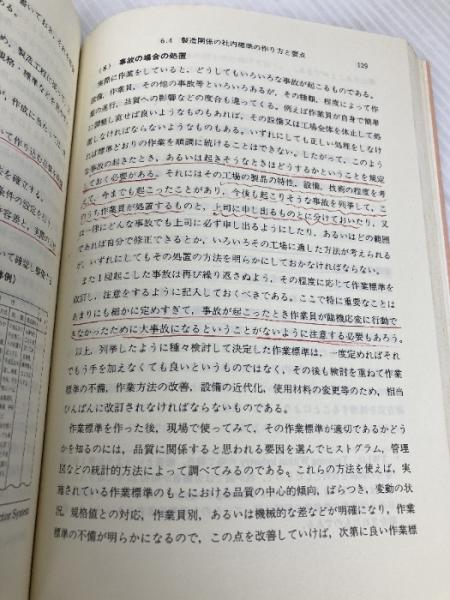 6.4 製造関係の社内標準の作り方と要点
129
(8) 事故の場合の処置
実際に作業をしていると、どうしてもいろいろな事故が起こるものである。
設備、作業員、その他の事故等といろいろあるが、その種類、程度によって作
業の遂行、品質への影響などの度合も違ってくる。例えば作業員が自身で簡単
に調整し直せば良いようなものもあれば、その設備又は工場全体を休止して処
置しなければならないようなものもある。いずれにしても正しい処理をしなけ
れば標準どおりの作業を順調に続けることはできない。したがって、このよう
な事故の起きたとき、あるいは起きそうなときはどうするかということを規定
しておく必要がある。それにはその工場の製品の特性、設備、技術の程度を考
えて、今までも起こったことがあり、今後も起こりそうな事故を列挙して、こ
のうち作業員が処置するものと、上司に申し出るものとに分けておいたり、又
は一律にどんな事故でも上司に必ず申し出るようにしたり、あるいはどの範囲
であれば自分で修正できるとか、いろいろその工場に適した方法が考えられる
が、いずれにしてもその処置の方法を明らかにしておかなければならない。
また1回起こした事故は再び繰り返さぬよう、その程度に応じて作業標準を
改訂し、注意をするように記入しておくべきである。ここで特に重要なことは
あまりにも細かに定めすぎて、事故が起こったとき作業員が臨機応変に行動で
きなかったために大事故になるということがないように注意する必要もあろう。
以上、列挙したように種々検討して決定した作業標準は、一度定めればそれ
でもう手を加えなくても良いというようなものではなく、その後も検討を重ねて作業
標準の不備、作業方法の改善、設備の近代化、使用材料の変更等のため、相当
ひんぱんに改訂されなければならないものである。
作業標準を作った後、現場で使ってみて、その作業標準が適切であるかどう
かを知るのには、品質に関係すると思われる要因を選んでヒストグラム、管理
図などの統計的方法によって調べてみるのである。これらの方法を使えば、実
施されている作業標準のもとにおける品質の中心的傾向、ばらつき、変動の状
況、規格値との対応、作業員別、あるいは機械的な差などが明確になり、作業
標準の不備が明らかになるので、この点を改善していけば、次第に良い作業標